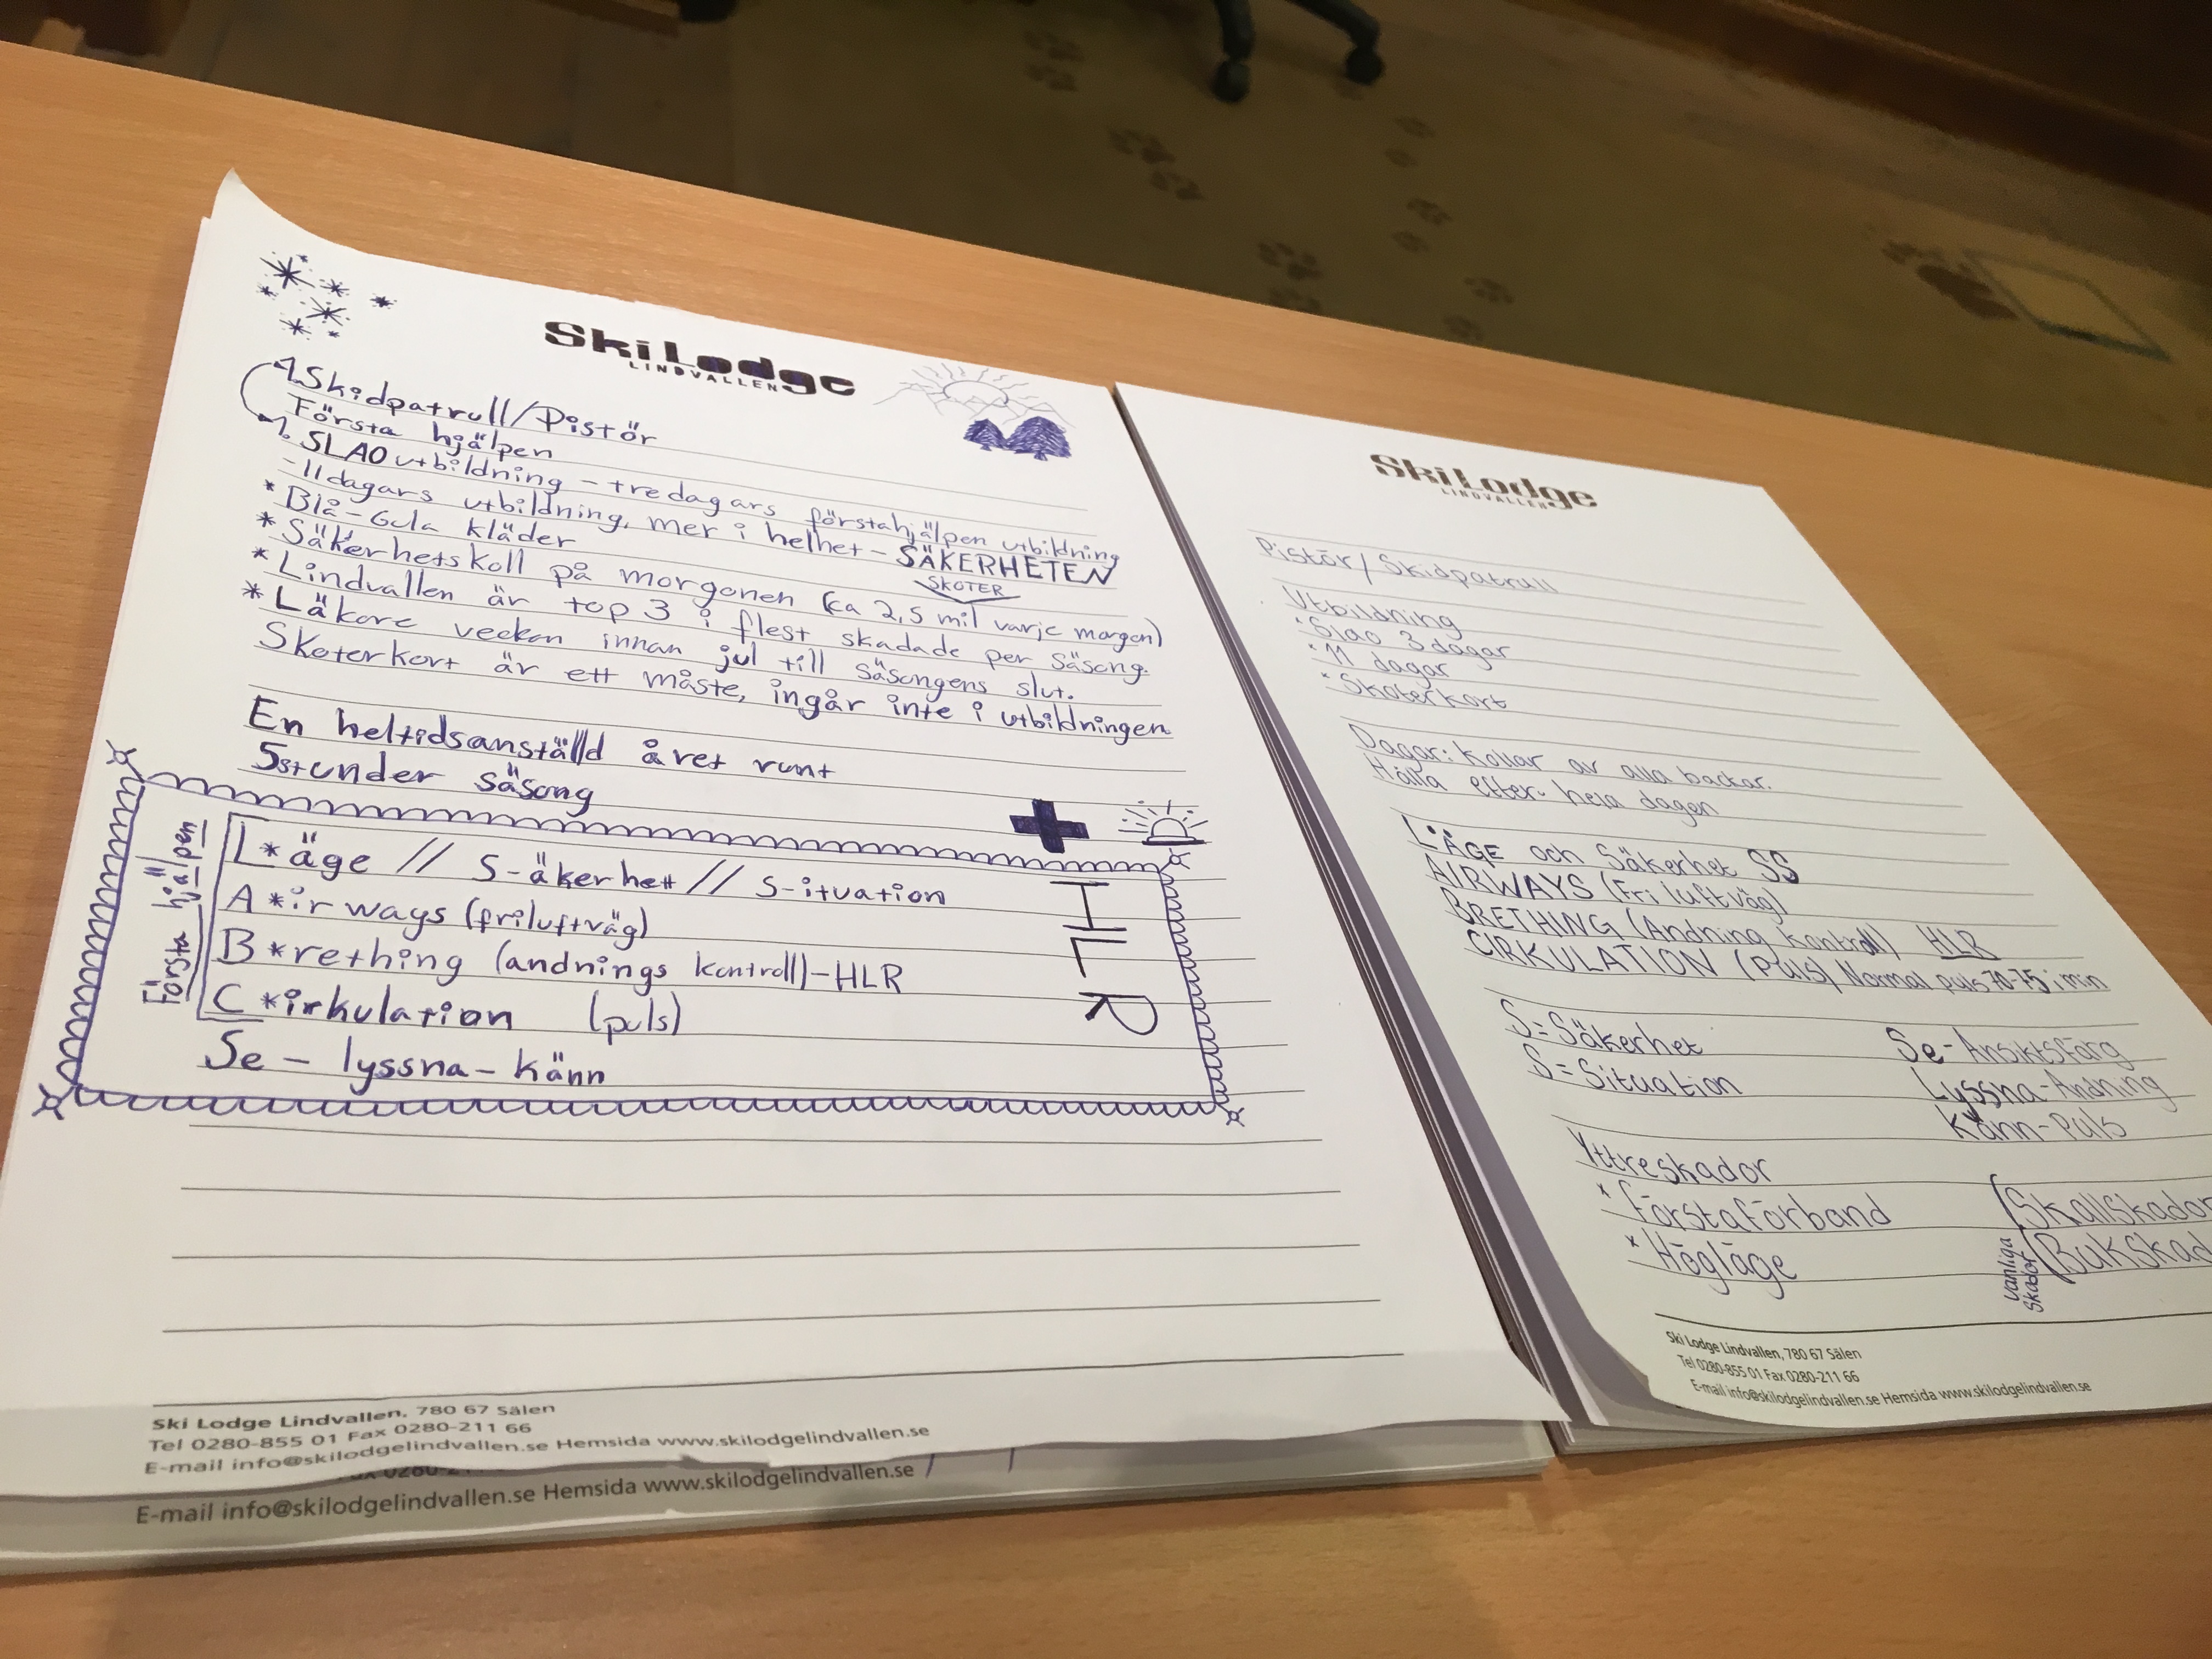 Ski Lodge
LINDVALLEN
1. Skidpatrull/Pistör
Första hjälpen
1. SLAO utbildning - tre dagars förstahjälpen utbildning
- 11 dagars utbildning, mer i helhet - SÄKERHETEN
* Blå-Gula kläder
SKOTER
* Säkerhetskoll på morgonen (ca 2,5 mil varje morgon)
* Lindvallen är top 3 i flest skadade per säsong.
* Läkare veckan innan jul till säsongens slut.
Skoterkort är ett måste, ingår inte i utbildningen
En heltidsanställd året runt
5st under säsong
Första hjälpen
L*äge // S-äkerhet // S-ituation
A*irways (friluftväg)
B*rething (andnings kontroll)-HLR
C*irkulation (puls)
Se - lyssna - känn
HLR
Ski Lodge Lindvallen, 780 67 Sälen
Tel 0280-855 01 Fax 0280-211 66
E-mail info@skilodgelindvallen.se Hemsida www.skilodgelindvallen.se
E-mail info@skilodgelindvallen.se Hemsida www.skilodgelindvallen.se
Ski Lodge
LINDVALLEN
Pistör/Skidpatrull
Utbildning
* Slao 3 dagar
* 11 dagar
* Skoterkort
Dagar: Kollar av alla backar.
Hålla efter hela dagen
LÄGE och Säkerhet SS
AIRWAYS (Fri luftväg)
BRETHING (Andning kontroll) HLR
CIRKULATION (puls) Normal puls 70-75 i min
S=Säkerhet Se-Ansiktsfärg
S=Situation Lyssna-Andning
Känn-Puls
Yttreskador
* Förstaförband (Skallskador
* Högläge (Bukskad
Vanliga skador
Ski Lodge Lindvallen, 780 67 Sälen
Tel 0280-855 01 Fax 0280-211 66
E-mail info@skilodgelindvallen.se Hemsida www.skilodgelindvallen.se